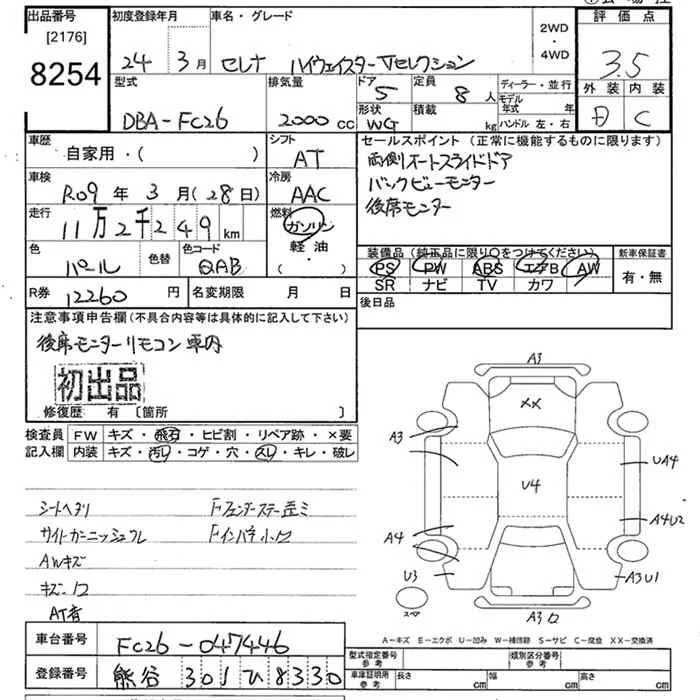 出品番号 初度登録年月 車名・グレード 2WD・4WD 評価点
[2176]
8254
24年 3月 セレナ ハイウェイスターVセレクション 3.5
型式 排気量 ドア 定員 ディーラー・並行 外装 内装
DBA-FC26 2000cc 5 8人 モデル年式 年 D C
形状 WG 積載 kg ハンドル 左・右
車歴 シフト セールスポイント (正常に機能するものに限ります)
自家用・( ) AT 両側オートスライドドア
車検 冷房 バックビューモニター
R09年 3月(28日) AAC 後席モニター
走行 燃料
11万2千249km ガソリン
軽油
・( )
色 色替 色コード 装備品 (純正品に限り○をつけてください) 新車保証書
パール QAB PS PW ABS エアB AW 有・無
SR ナビ TV カワ
R券 12260円 名変期限 月 日 後日品
注意事項申告欄(不具合内容等は具体的に記入して下さい)
後席モニターリモコン車内
初出品
修復歴 有 〔箇所 〕
検査員 FW キズ・飛石・ヒビ割・リペア跡・×要
記入欄 内装 キズ・汚レ・コゲ・穴・スレ・キレ・破レ
シートヘタリ
AWキズ
A3
XX
A3
U4
UA4
A4
A4U2
U3
A3U1
スペア
A-キズ E-エクボ U-凹み W-補修跡 S-サビ C-腐食 XX-交換済
車台番号 FC26-047446
型式指定番号 参考 類別区分番号 参考
登録番号 熊谷 301 ひ 8330
車庫証明用 参考 長さ cm 幅 cm 高さ cm